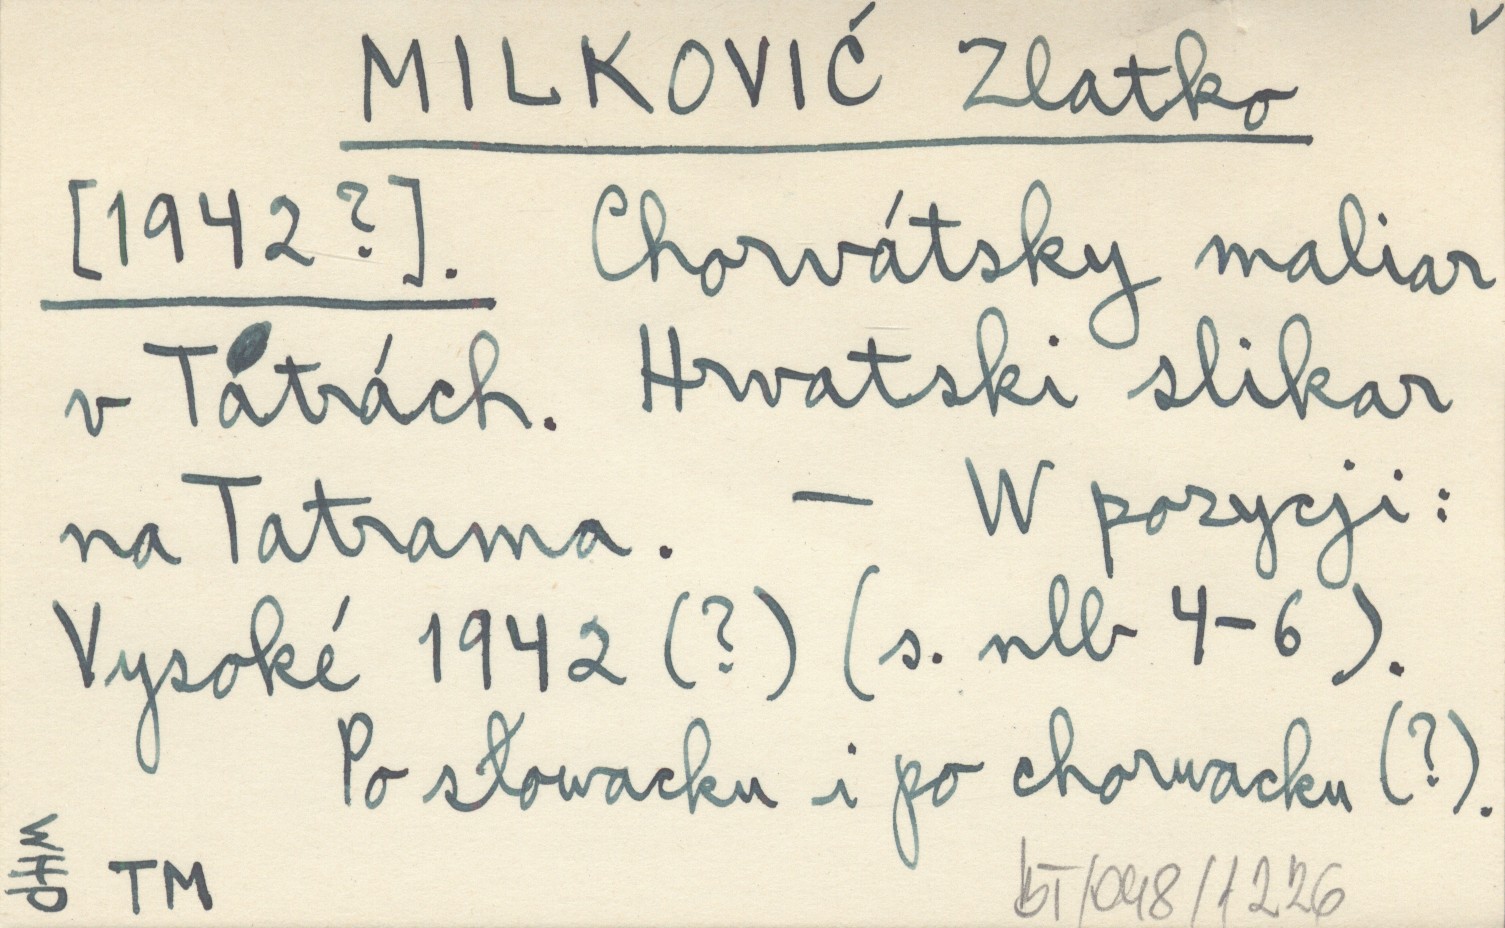 MILKOVIĆ Zlatko
[1942?]. Chorvátsky maliar
v Tatrách. Hrvatski slikar
na Tatrama. — W pozycji:
Vysoké 1942 (?) (s. nlb 4-6).
Po słowacku i po chorwacku (?).
WHP
TM
bT/048/1226